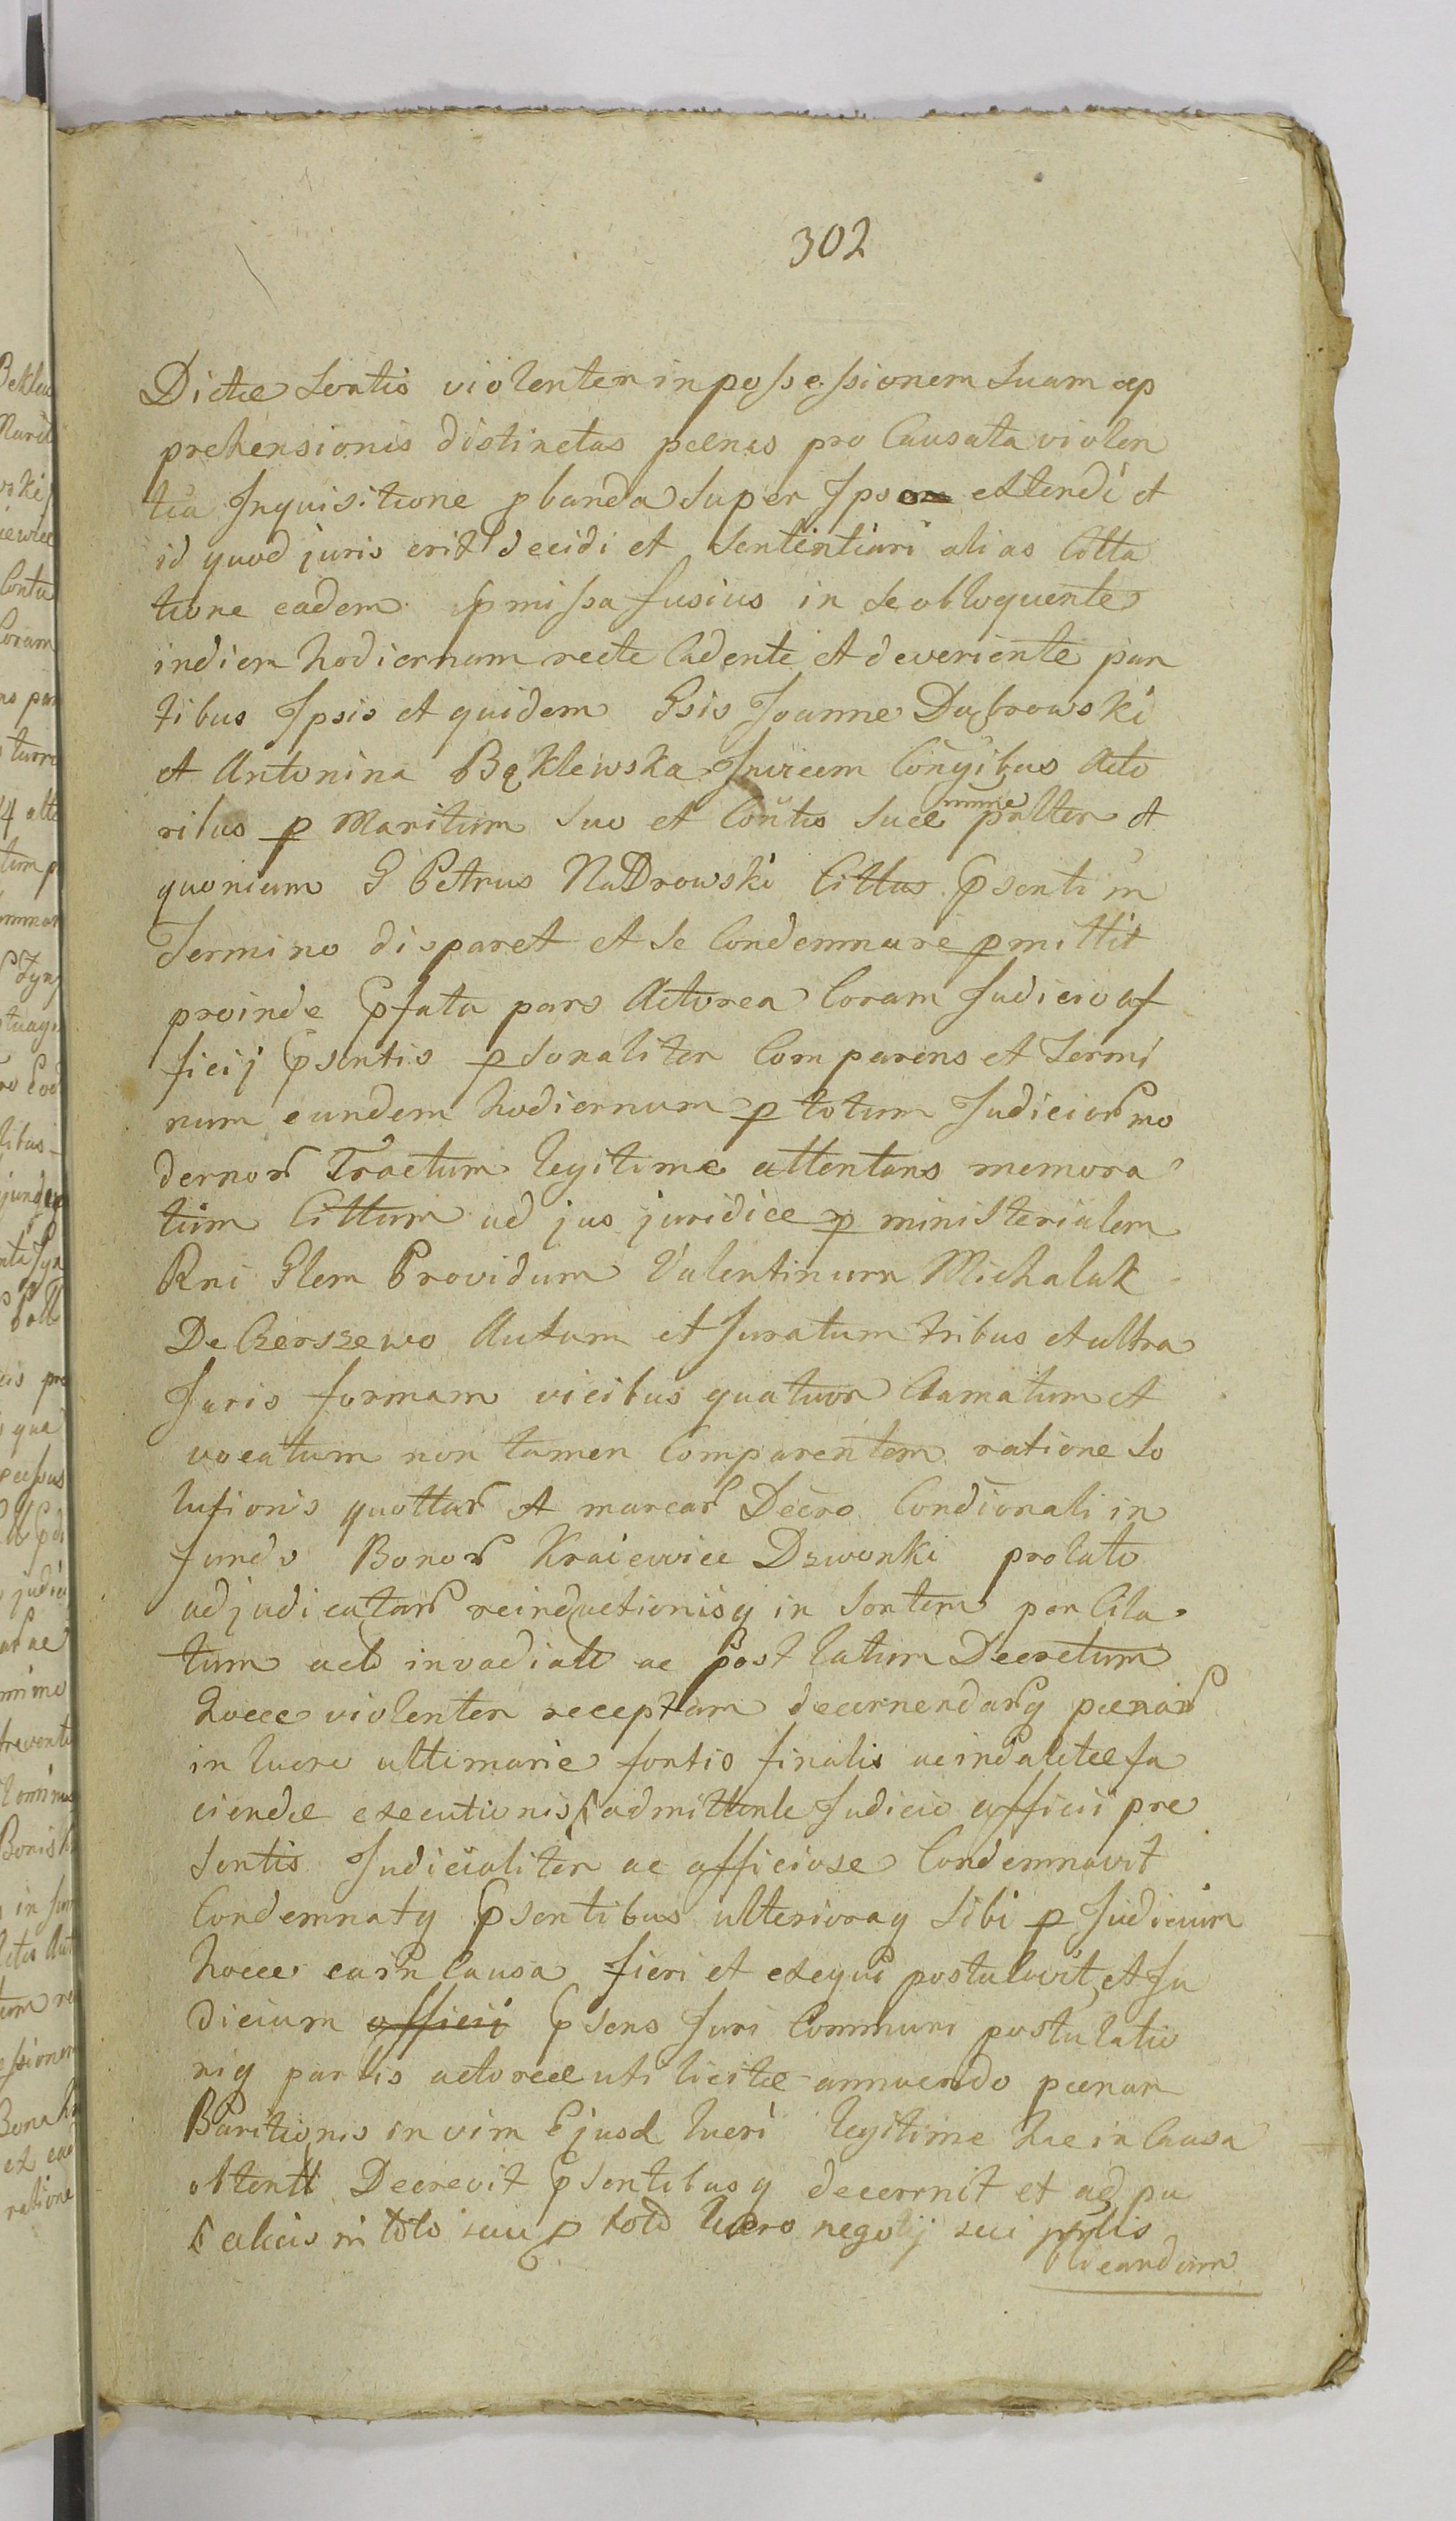 302
Dictæ Sortis violenter in possessionem Suam ap
prehensionis distinctas pœnas pro Causata violen
tia Inquisitione pbanda Super Ipso extendi et
id quod juris erit decidi et Sententiari alias Citta
tione eadem pmissa fusius in se obloquente
in diem hodiernum recte Cadente et deveniente par
tibus Ipsis et quidem Gsis Joanne Dąbrowski
et Antonina Bąklewska Invicem Conjgibus Acto
ribus p Maritum Suo et Contis Suæ nmne pnlter et
quoniam G Petrus Nadrowski Cittus psenti in
Termino disparet et se Condemnare pmittit
proinde pfata pars Actorea Coram Judicio of
ficij psentis psonaliter Comparens et Termi
num eundem hodiernum p totum Judicior mo
dernor Tractum legitime attentans memora
tum Cittum ad jus juridice p ministerialem
Rni Glem Providum Valentinum Michalak
De Czerszewo Autum et Juratum tribus et ultra
Juris formam vicibus quatuor Clamatum et
vocatum non tamen Comparentem ratione So
lutionis quottar et marcar Decro Condionali in
fundo Bonor Kraiewice Dzwonki prolato
adjudicatar reinductionisq in Sortem per Cita
tum actt invadiatt ac post latum Decretum
hocce violenter receptam decernendarq pœnar
in lucro ultimarie fortis finalis ac indilatæ fa
ciendæ executionis admittente Judicio officii pre
sentis Judicialiter ac officiose Condemnavit
Condemnatq psentibus ulterioraq Sibi p Judicium
hocce ea in Causa fieri et exequi postulavit, et Ju
dicium officii psens Juri Communi postulatio
niq partis actoreæ uti licitæ annuendo pœnam
Paritionis in vim Ejusd lucri legitime hac in Causa
obtentt Decrevit psentibusq decernit et ad pu
in toto suu p toto lucro negotij sui pnlis
blicandum